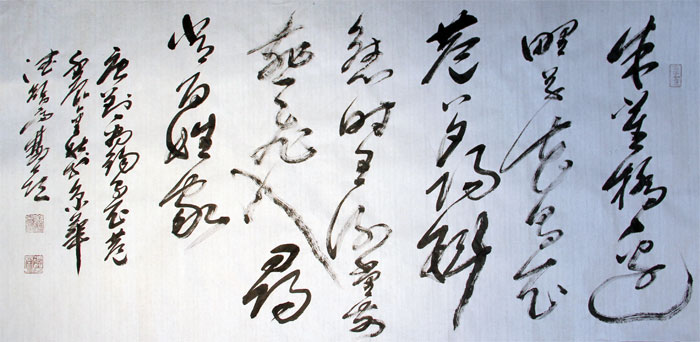 朱雀橋邊
野草花烏衣
巷口夕陽斜
舊時王謝堂前
燕飛入尋
常百姓家
唐劉禹錫烏衣巷
京華